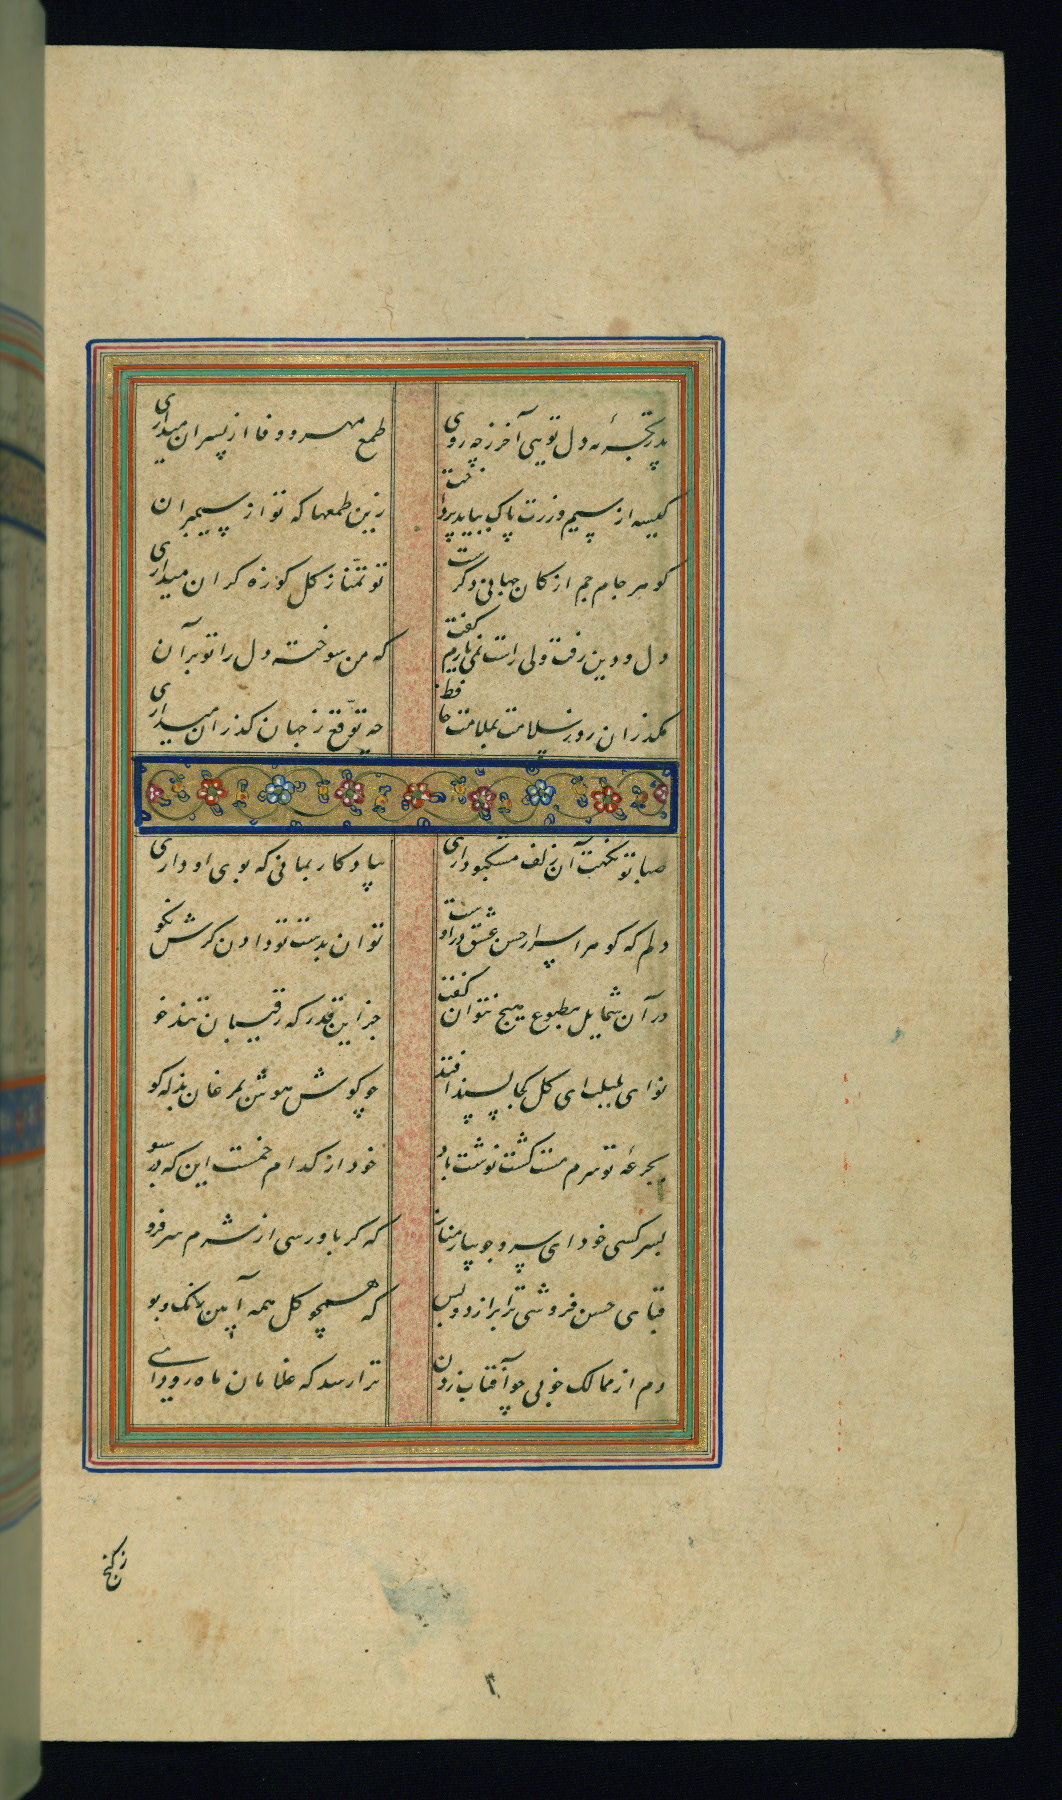 پدر تجربهٔ ای دل تویی آخر ز چه روی طمع مهر و وفا از پسران میداری
کیسه از سیم و زرت پاک بباید پرداخت زین طمعها که تو از سیمبران میداری
گوهر جام جم از کان جهانی دگرست تو تمنّا ز گل کوزه گران میداری
دل و دین رفت ولی راست نمی یارم گفت که من سوخته دل را تو بر آن میداری
مگذران روز سلامت بملامت حافظ چه توقّع ز جهان گذران میداری
صبا تو نکهت آن زلف مشکبو داری بیادگار بمانی که بوی او داری
دلم که گوهر اسرار حسن عشق در اوست توان بدست تو دادن گرش نکو
در آن شمایل مطبوع هیچ نتوان گفت جز این قدر که رقیبان تندخو
نوای بلبلت ای گل کجا پسند افتد چو گوش هوش بمرغان بذله گو
بجرعهٔ تو سرم مست گشت نوشت باد خود از کدام خمست این که در سبو
بسر کشی خود ای سرو جویبار مناز که گر باو رسی از شرم سر فرو
قبای حسن فروشی ترا برازد و بس که همچو گل همه آیین رنگ و بو
دم از ممالک خوبی چو آفتاب زدن ترا رسد که غلامان ماه رو داری
ز کنج